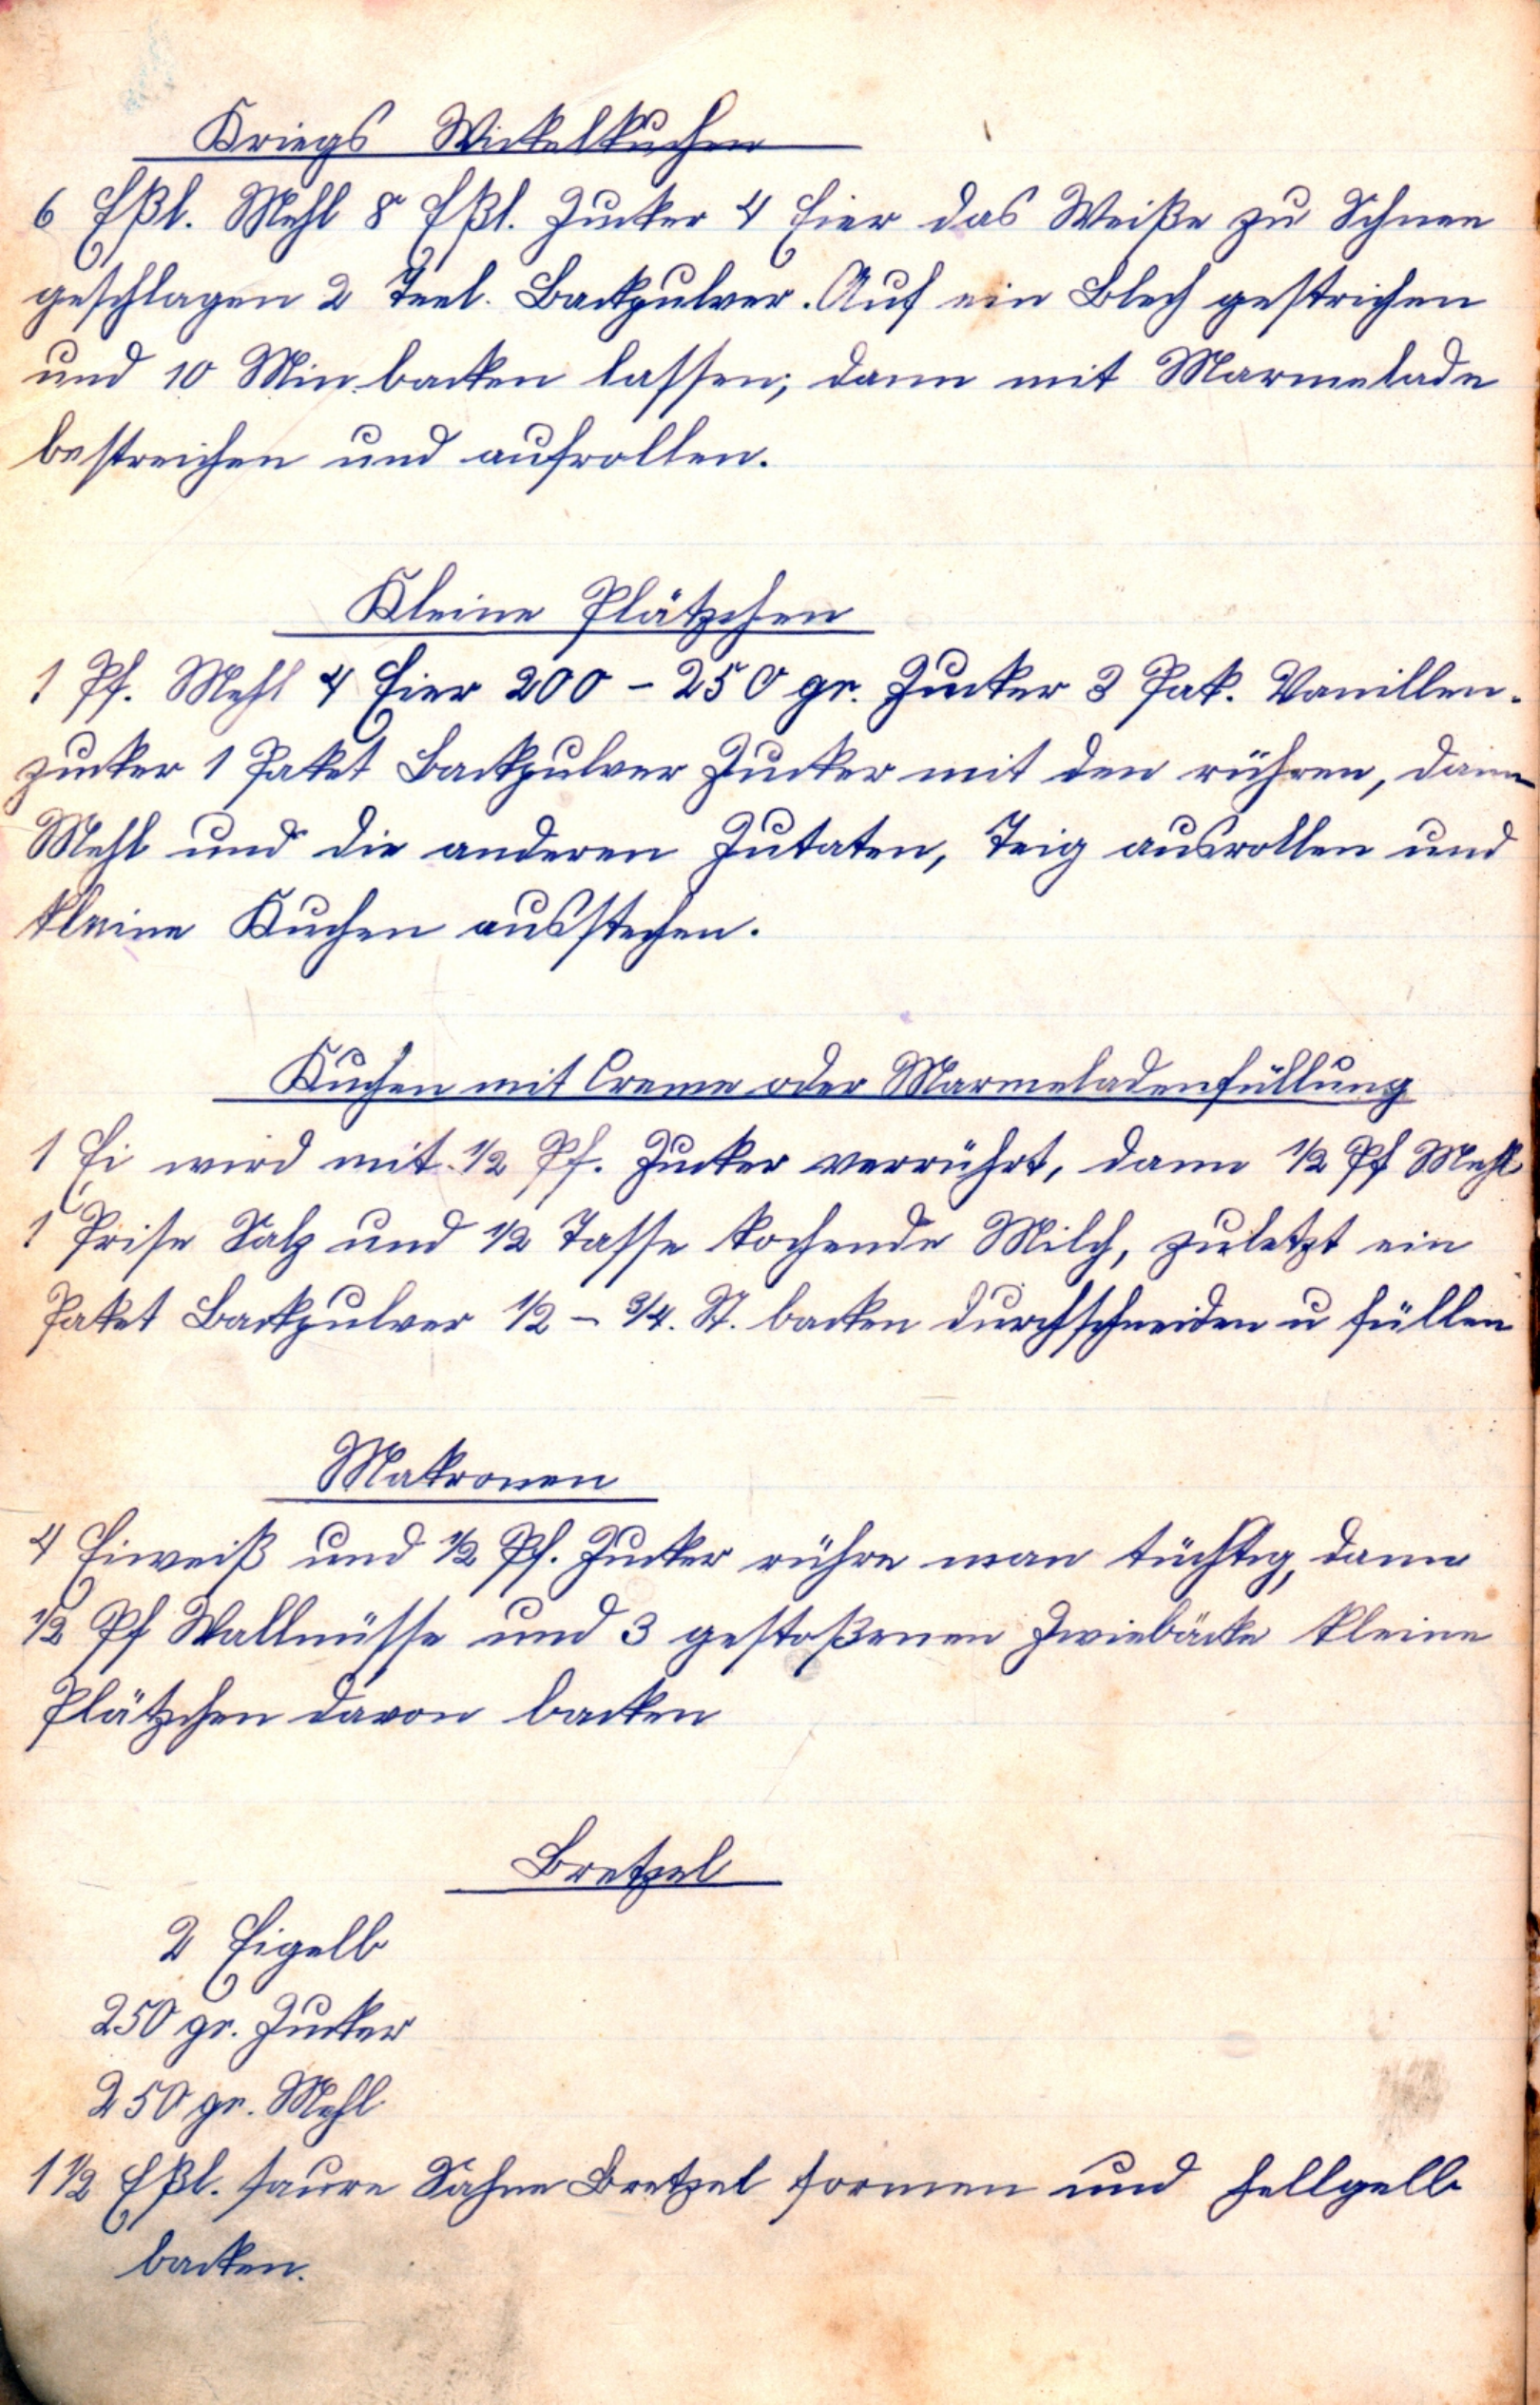 Kriegs Wickelkuchen
6 Eßl. Mehl 8 Eßl. Zucker 4 Eier das Weiße zu Schnee
geschlagen 2 Teel. Backpulver. Auf ein Blech gestrichen
und 10 Min. backen lassen, dann mit Marmelade
bestreichen und aufrollen.
Kleine Plätzchen
1 Pf. Mehl 4 Eier 200 - 250 gr. Zucker 3 Pak. Vanillen-
zucker 1 Paket Backpulver Zucker mit den rühren, dann
Mehl und die anderen Zutaten, Teig ausrollen und
kleine Kuchen ausstechen.
Kuchen mit Creme oder Marmeladenfüllung
1 Ei wird mit 1/2 Pf. Zucker verrührt, dann 1/2 Pf Mehl
1 Prise Salz und 1/2 Tasse kochende Milch, zuletzt ein
Paket Backpulver 1/2 - 3/4. St. backen durchschneiden u füllen
Makronen
4 Eiweiß und 1/2 Pf. Zucker rühre man tüchtig, dann
1/2 Pf Wallnüsse und 3 gestoßenen Zwiebäcke kleine
Plätzchen davon backen
Bretzel
2 Eigelb
250 gr. Zucker
250 gr. Mehl
1 1/2 Eßl. saure Sahne Bretzel formen und hellgelb
backen.